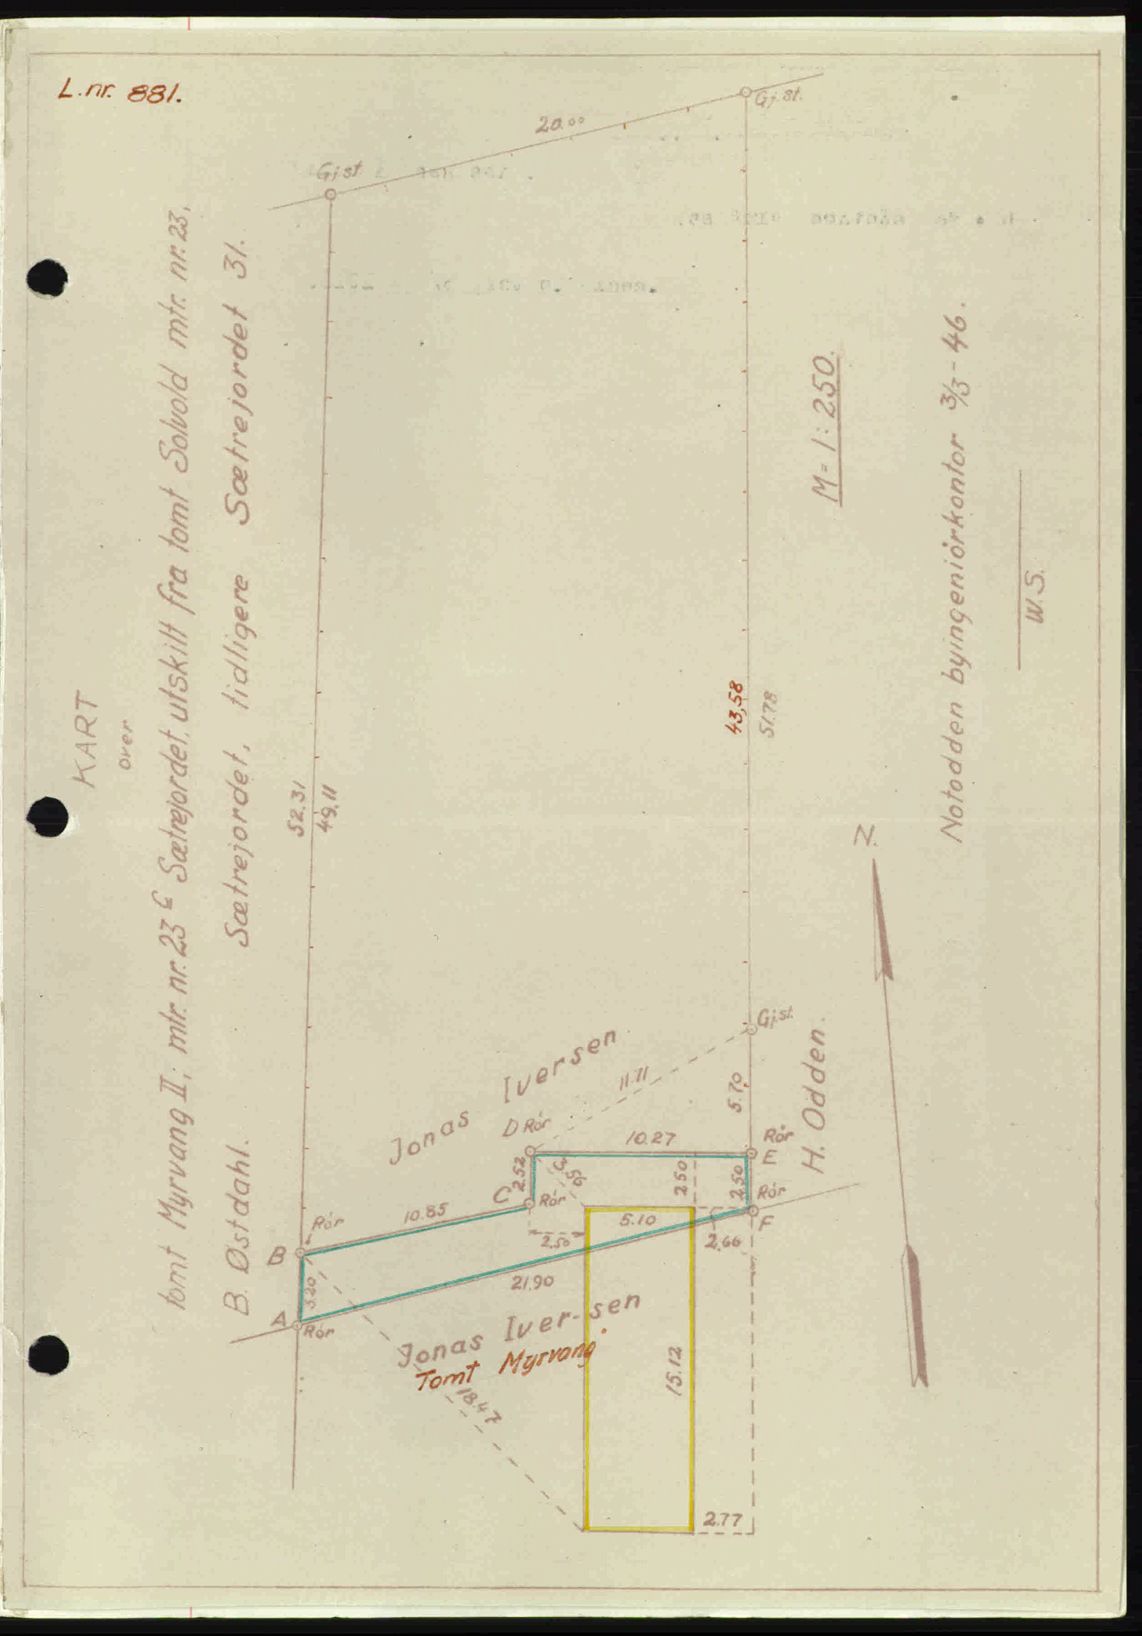 L.nr. 881.
KART
over
tomt Myrvang II; mtr. nr. 23 c Sætrejordet, utskilt fra tomt Solvold mtr. nr. 23,
Sætrejordet, tidligere Sætrejordet 31.
B. Østdahl.
Gj.st.
20.00
Gj.st.
M = 1:250.
Notodden byingeniørkontor 3/3-46.
W.S.
52.31
49.11
43,58
51.78
N.
Gj.st.
H. Odden.
Jonas Iversen
11.11
5.70
D Rör
10.27
Rör
E
2.52
2.50
2.50
C
Rör
Rör
F
10.85
5.10
2.50
2.66
Rör
B
3.20
21.90
A
Rör
Jonas Iver-sen
Tomt Myrvang
18.47
15.12
2.77